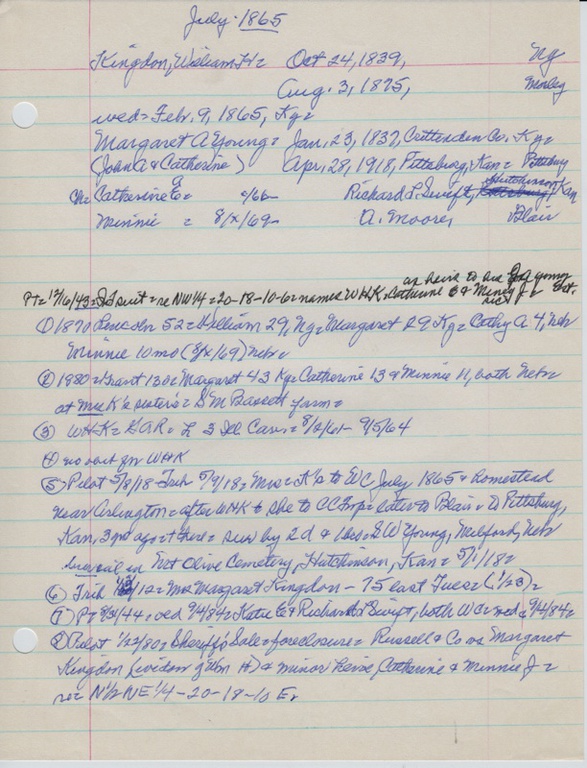 July - 1865
Kingdon, William H = Oct 24, 1839, Ng
Aug. 3, 1875, Morley
wed = Febr. 9, 1865, Ky =
Margaret A Young = Jan. 23, 1837, Crittenden Co. Ky =
(John A & Catherine) Apr. 28, 1918, Pittsburg, Kan = Pittsburg
Ch = Catherine E = c/66 - Richard L. Swift, Hutchinson, Kan
Minnie = 8/x/69 - A. Moore, Blair
as heirs to est
PT = 12/6/43 = suit = re NW 1/4 = 20-18-10-6 = names WHK, Catherine E & J =
① 1870 Lincoln 52 = William 29, Ng = Margaret 29 Ky = Cathy A 4, Neb
Minnie 10 mo (8/x/69) Neb =
② 1880 = Grant 130 = Margaret 43 Ky = Catherine 13 & Minnie 11, both Neb =
at Mrs K's sister's = S M Bassett farm =
③ WHK = GAR = L 3 Ill Cav. = 8/2/61 - 9/5/64
④ no WHK
⑤ Pilot 5/8/18 Trib 5/9/18 = Mrs = K's to WC July 1865 & homestead
near Arlington = after WHK d she to CC Twp = later to Blair = D Pittsburg,
Kan, 3 yrs ago = = surv by 2 d & bro = S W Young, Milford, Neb
burial in Mt Olive Cemetery, Hutchinson, Kan = 5/1/18 =
⑥ Trib /12 = Mrs Margaret Kingdon - 75 last Tues (1/23) =
⑦ PT = 8/31/44 = wed 9/4/84 = Katie E & Richard Swift, both WC = wed = 9/4/84 =
⑧ Pilot 1/22/80 = Sheriff's Sale = foreclosure = Russell & Co vs Margaret
Kingdon (widow of Wm H) & minor heirs, Catherine & Minnie J =
re = N 1/2 NE 1/4 - 20-18-10 E